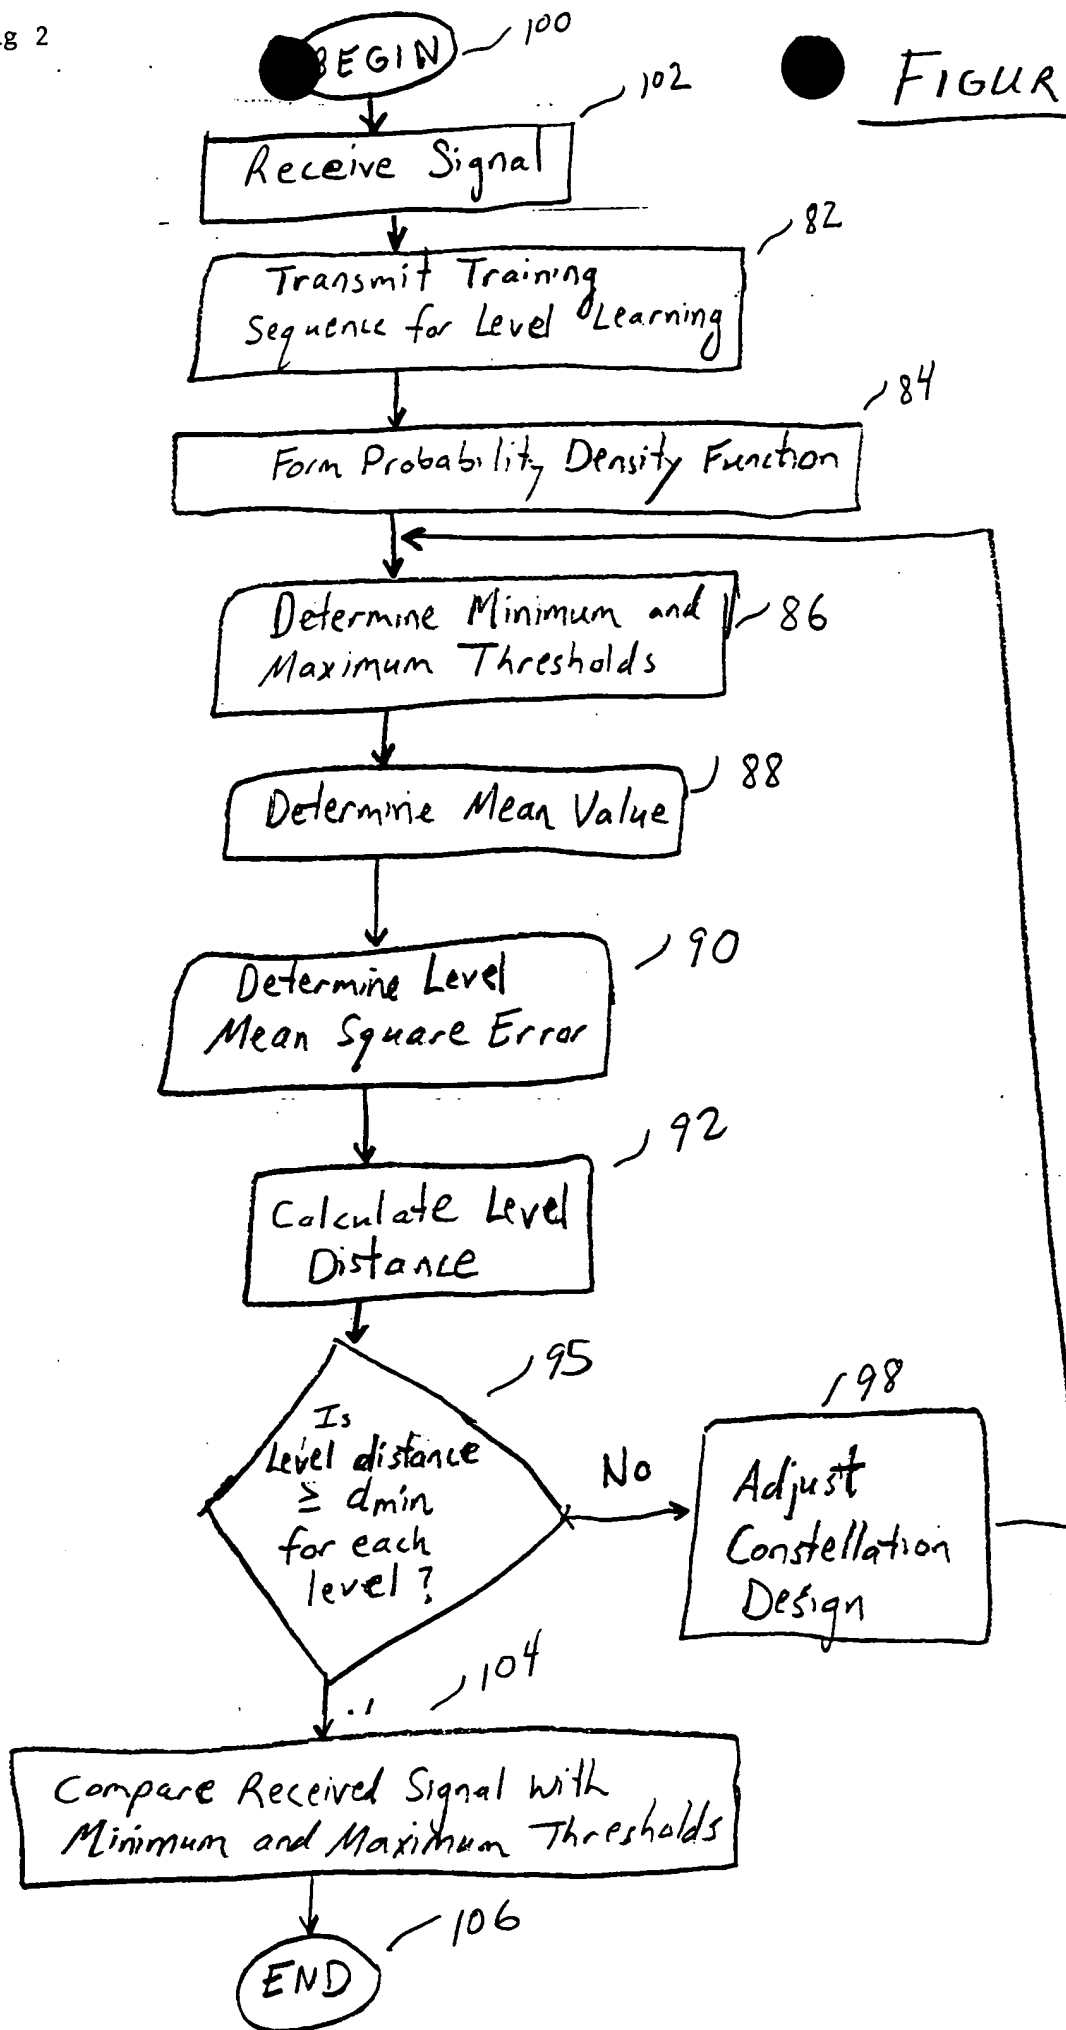 g 2
BEGIN
100
FIGUR
102
Receive Signal
82
Transmit Training
Sequence for Level Learning
84
Form Probability Density Function
Determine Minimum and
Maximum Thresholds
86
88
Determine Mean Value
90
Determine Level
Mean Square Error
92
Calculate Level
Distance
95
Is
Level distance
≥ dmin
for each
level?
No
98
Adjust
Constellation
Design
104
Compare Received Signal with
Minimum and Maximum Thresholds
106
END